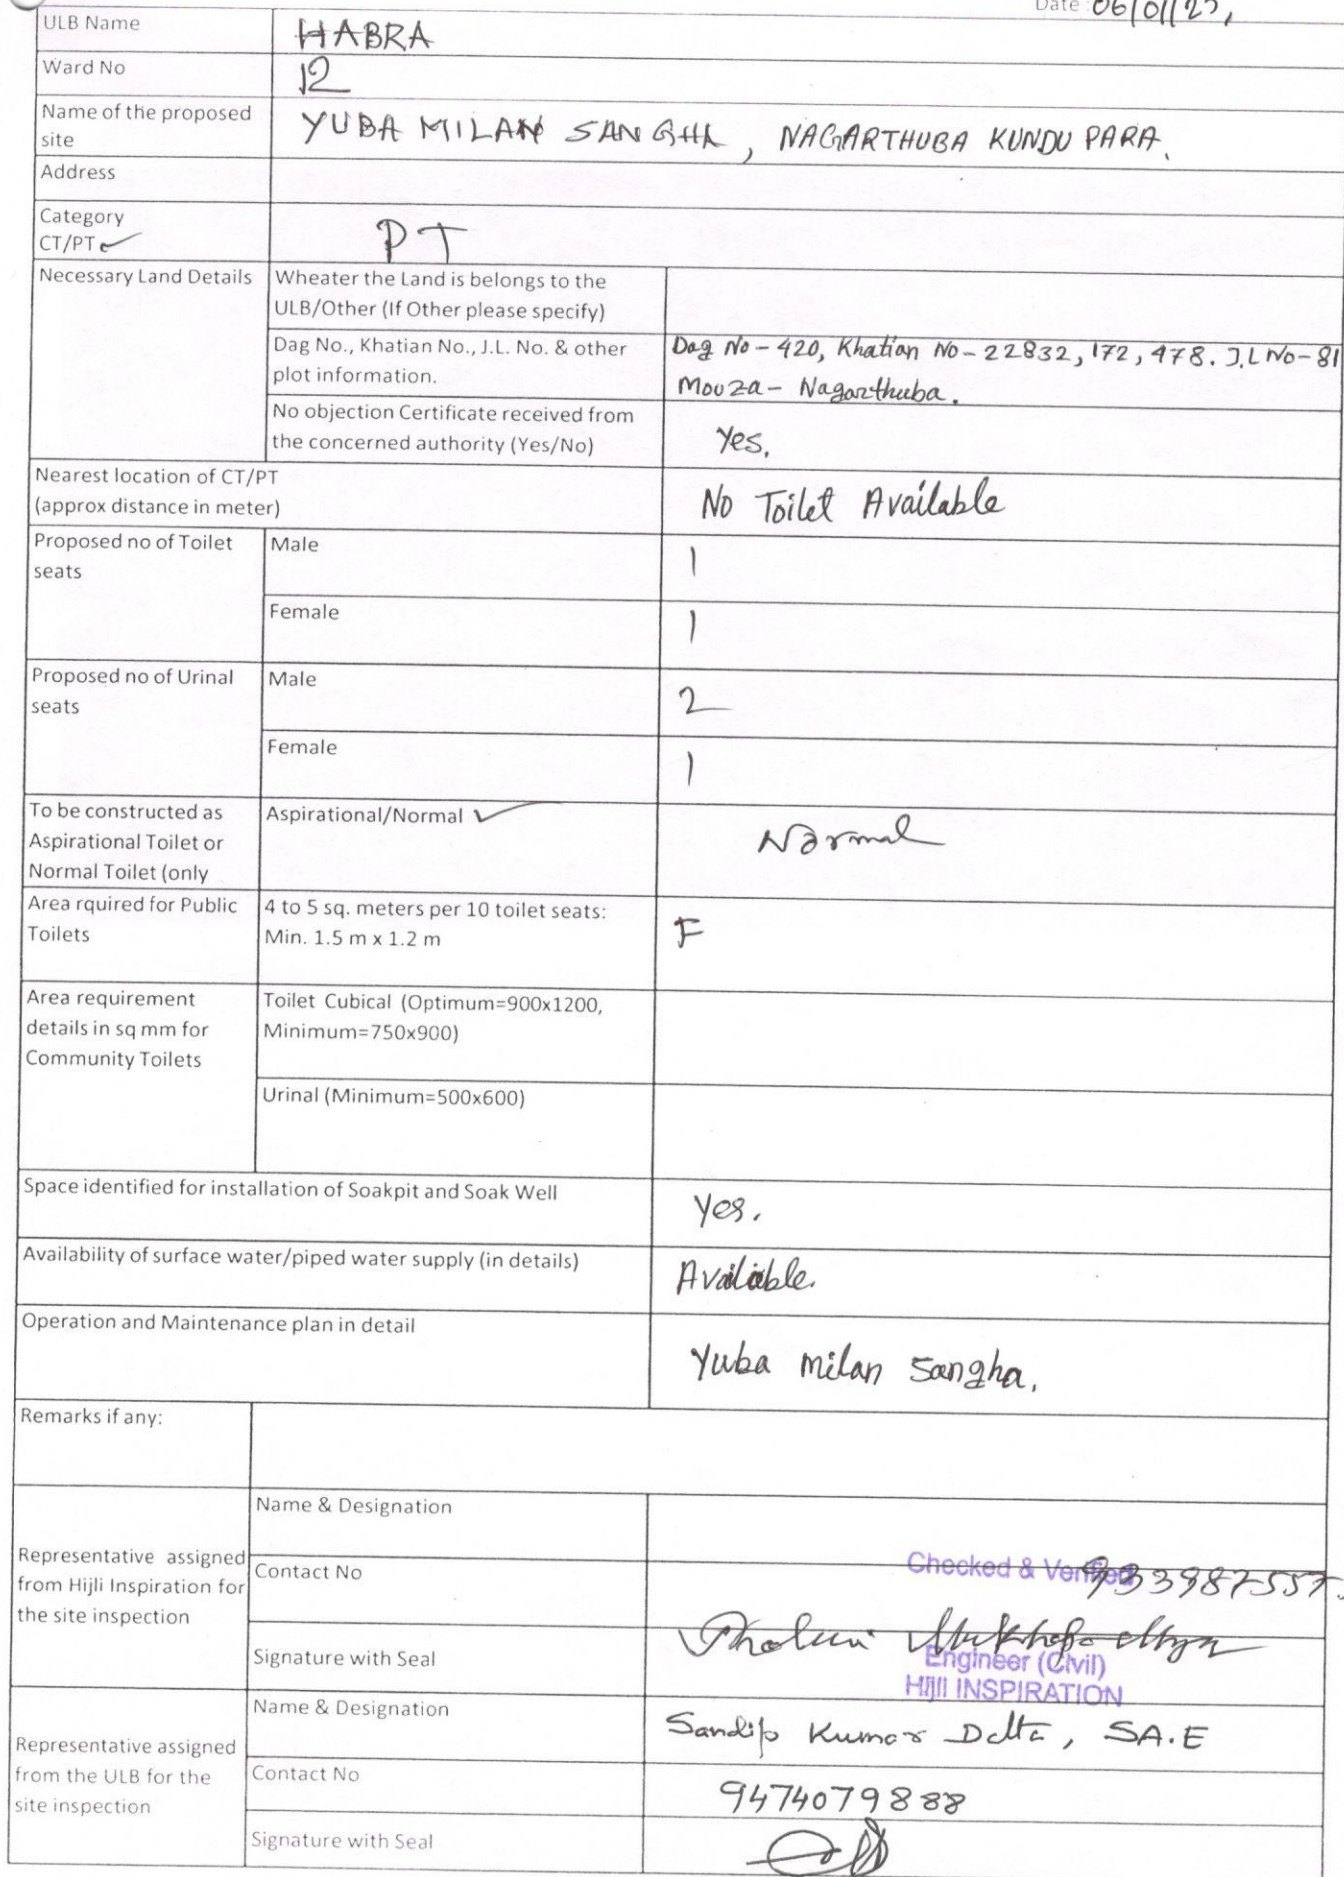 Date: 06/01/23,
ULB Name
HABRA
Ward No
12
Name of the proposed
site
YUBA MILAN SANGHA, NAGARTHUBA KUNDU PARA.
Address
Category
CT/PT ✓
PT
Necessary Land Details
Wheater the Land is belongs to the
ULB/Other (If Other please specify)
Dag No., Khatian No., J.L. No. & other
plot information.
Dag No - 420, Khatian No - 22832, 172, 478. J.L No - 81
Mouza - Nagarthuba.
No objection Certificate received from
the concerned authority (Yes/No)
Yes.
Nearest location of CT/PT
(approx distance in meter)
No Toilet Available
Proposed no of Toilet
seats
Male
1
Female
1
Proposed no of Urinal
seats
Male
2
Female
1
To be constructed as
Aspirational Toilet or
Normal Toilet (only
Aspirational/Normal ✓
Normal
Area rquired for Public
Toilets
4 to 5 sq. meters per 10 toilet seats:
Min. 1.5 m x 1.2 m
F
Area requirement
details in sq mm for
Community Toilets
Toilet Cubical (Optimum=900x1200,
Minimum=750x900)
Urinal (Minimum=500x600)
Space identified for installation of Soakpit and Soak Well
Yes.
Availability of surface water/piped water supply (in details)
Available.
Operation and Maintenance plan in detail
Yuba milan Sangha.
Remarks if any:
Representative assigned
from Hijli Inspiration for
the site inspection
Name & Designation
Contact No
Checked & Verified
933987557.
Signature with Seal
Mukhopadhyay
Engineer (Civil)
Hijli INSPIRATION
Representative assigned
from the ULB for the
site inspection
Name & Designation
Sandip Kumar Dutta, SA.E
Contact No
9474079888
Signature with Seal